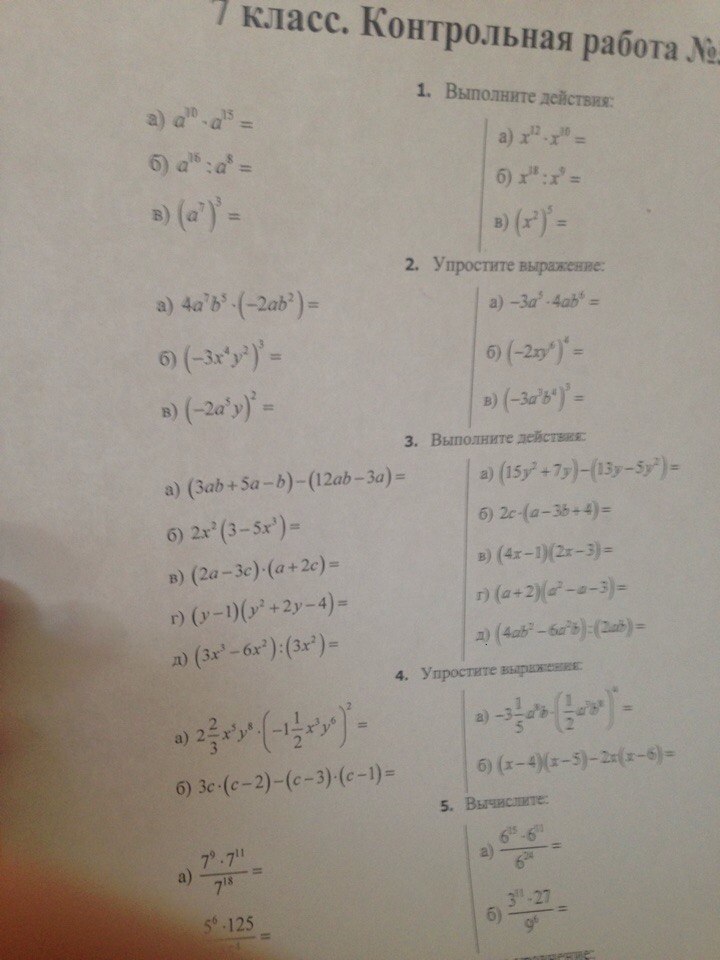 7 класс. Контрольная работа №
1. Выполните действия:
а) a¹⁰ · a¹⁵ =
б) a¹⁶ : a⁸ =
в) (a⁷)³ =
а) x¹² · x¹⁰ =
б) x¹⁸ : x⁹ =
в) (x²)⁵ =
2. Упростите выражение:
а) 4a⁷b⁵ · (−2ab²) =
б) (−3x⁴y²)³ =
в) (−2a⁵y)² =
а) −3a⁵ · 4ab⁶ =
б) (−2xy⁶)⁴ =
в) (−3a³b⁴)³ =
3. Выполните действия:
а) (3ab + 5a − b) − (12ab − 3a) =
б) 2x² (3 − 5x³) =
в) (2a − 3c) · (a + 2c) =
г) (y − 1)(y² + 2y − 4) =
д) (3x³ − 6x²) : (3x²) =
а) (15y² + 7y) − (13y − 5y²) =
б) 2c · (a − 3b + 4) =
в) (4x − 1)(2x − 3) =
г) (a + 2)(a² − a − 3) =
д) (4ab² − 6a²b) : (2ab) =
4. Упростите выражения:
а) 2 2/3 x⁵y⁸ · (−1 1/2 x³y⁶)² =
б) 3c · (c − 2) − (c − 3) · (c − 1) =
а) −3 1/5 a⁸b · (1/2
б) (x − 4)(x − 5) − 2x(x − 6) =
5. Вычислите:
а) 7⁹ · 7¹¹ / 7¹⁸ =
5⁶ · 125 =
а) 6¹⁵ · 6¹¹ / 6²⁴ =
б) 3¹¹ · 27 / 9⁶ =